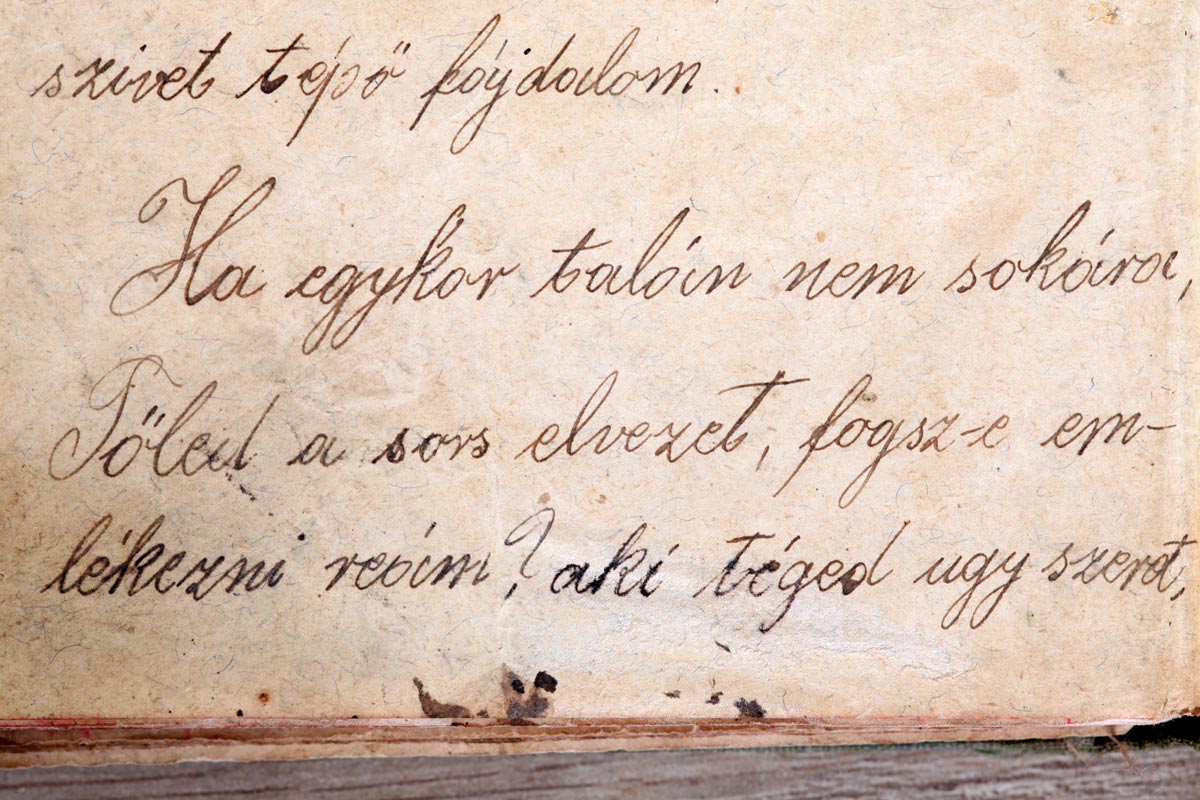 szivet tépő fájdalom.
Ha egykor talán nem sokára,
Tőled a sors elvezet, fogsz-e em-
lékezni reám? aki téged ugy szeret,